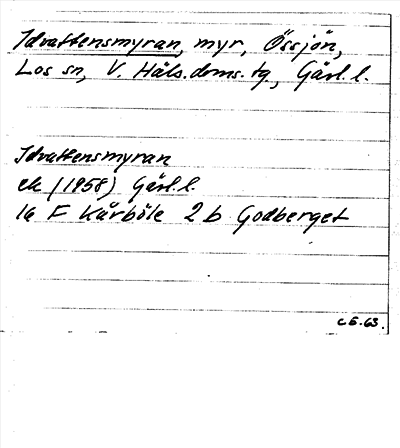 Idvattensmyran, myr, Össjön,
Los sn, V. Häls. doms. tg, Gävl. l.
Idvattensmyran
ek (1958) Gävl. l.
16 F Kårböle 2 b Godberget
C.E. 63.